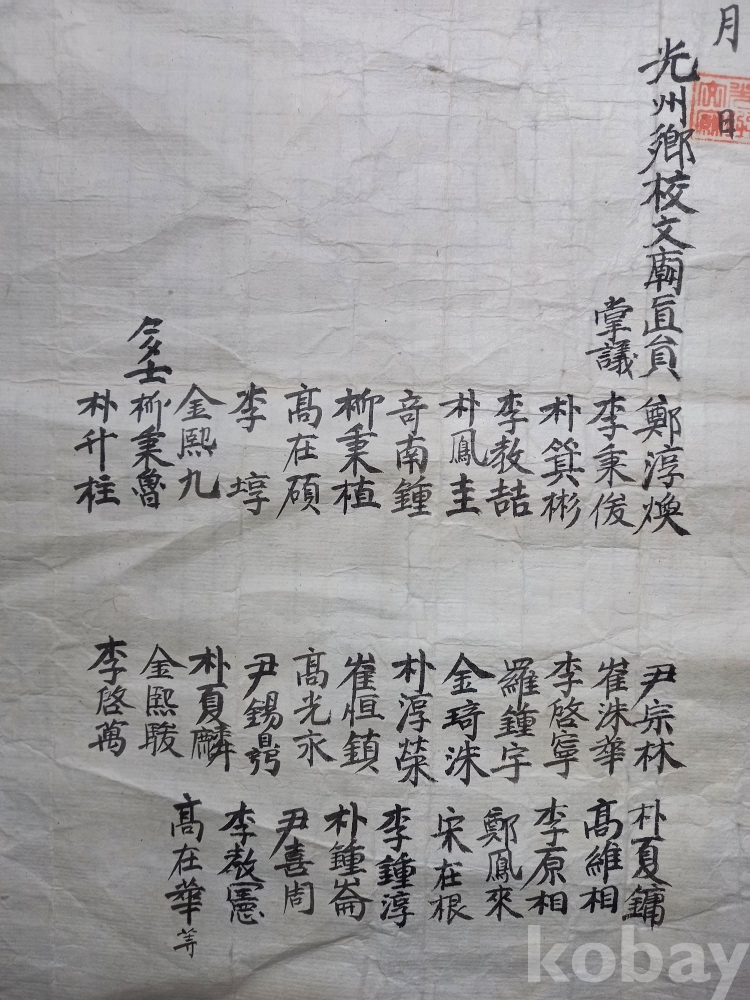 月
日
光州鄉校文廟直員 鄭淳煥
掌議 李秉俊
朴箕彬
李敎喆
朴鳳圭
奇南鍾
柳秉植
高在碩
李㙉
金熙九
多士 柳秉魯
朴升柱
尹宗林
崔洙華
李啓寧
羅鍾宇
金琦洙
朴淳榮
崔恒鎮
高光永
尹錫
朴夏麟
金熙駿
李啓萬
朴夏鏞
高維相
李原相
鄭鳳來
宋在根
李鍾淳
朴鍾崙
尹喜周
李敎憲
高在華 等
kobay